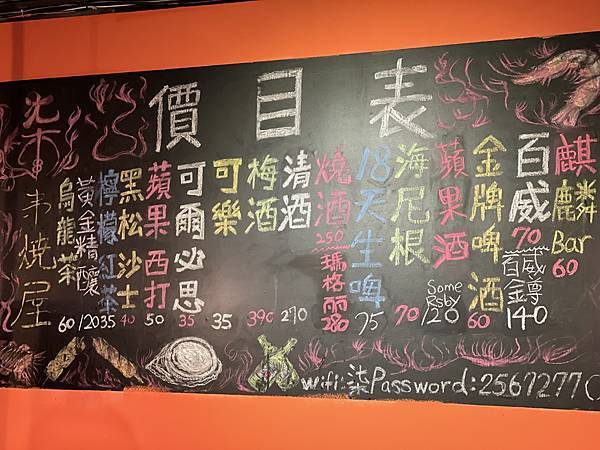 價目表
麒麟Bar 60
百威 70
百威金罇 140
金牌啤酒 60
蘋果酒 Somersby 120
海尼根 70
18天生啤 75
燒酒 250
瑪格麗 280
清酒 270
梅酒 390
可樂 35
可爾必思 35
蘋果西打 50
黑松沙士 40
檸檬紅茶 35
黃金精釀 120
烏龍茶 60
柒串燒屋
wifi:柒Password:2567277